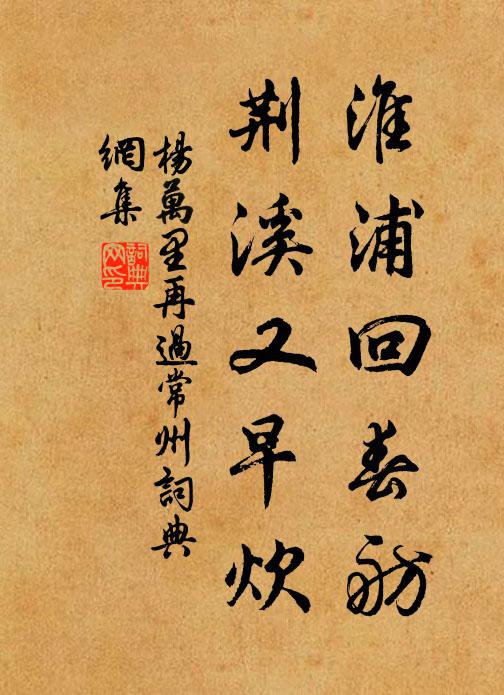 淮浦回春舫
荆溪又早炊
楊萬里再過常州詞典
網集
詞典
网印